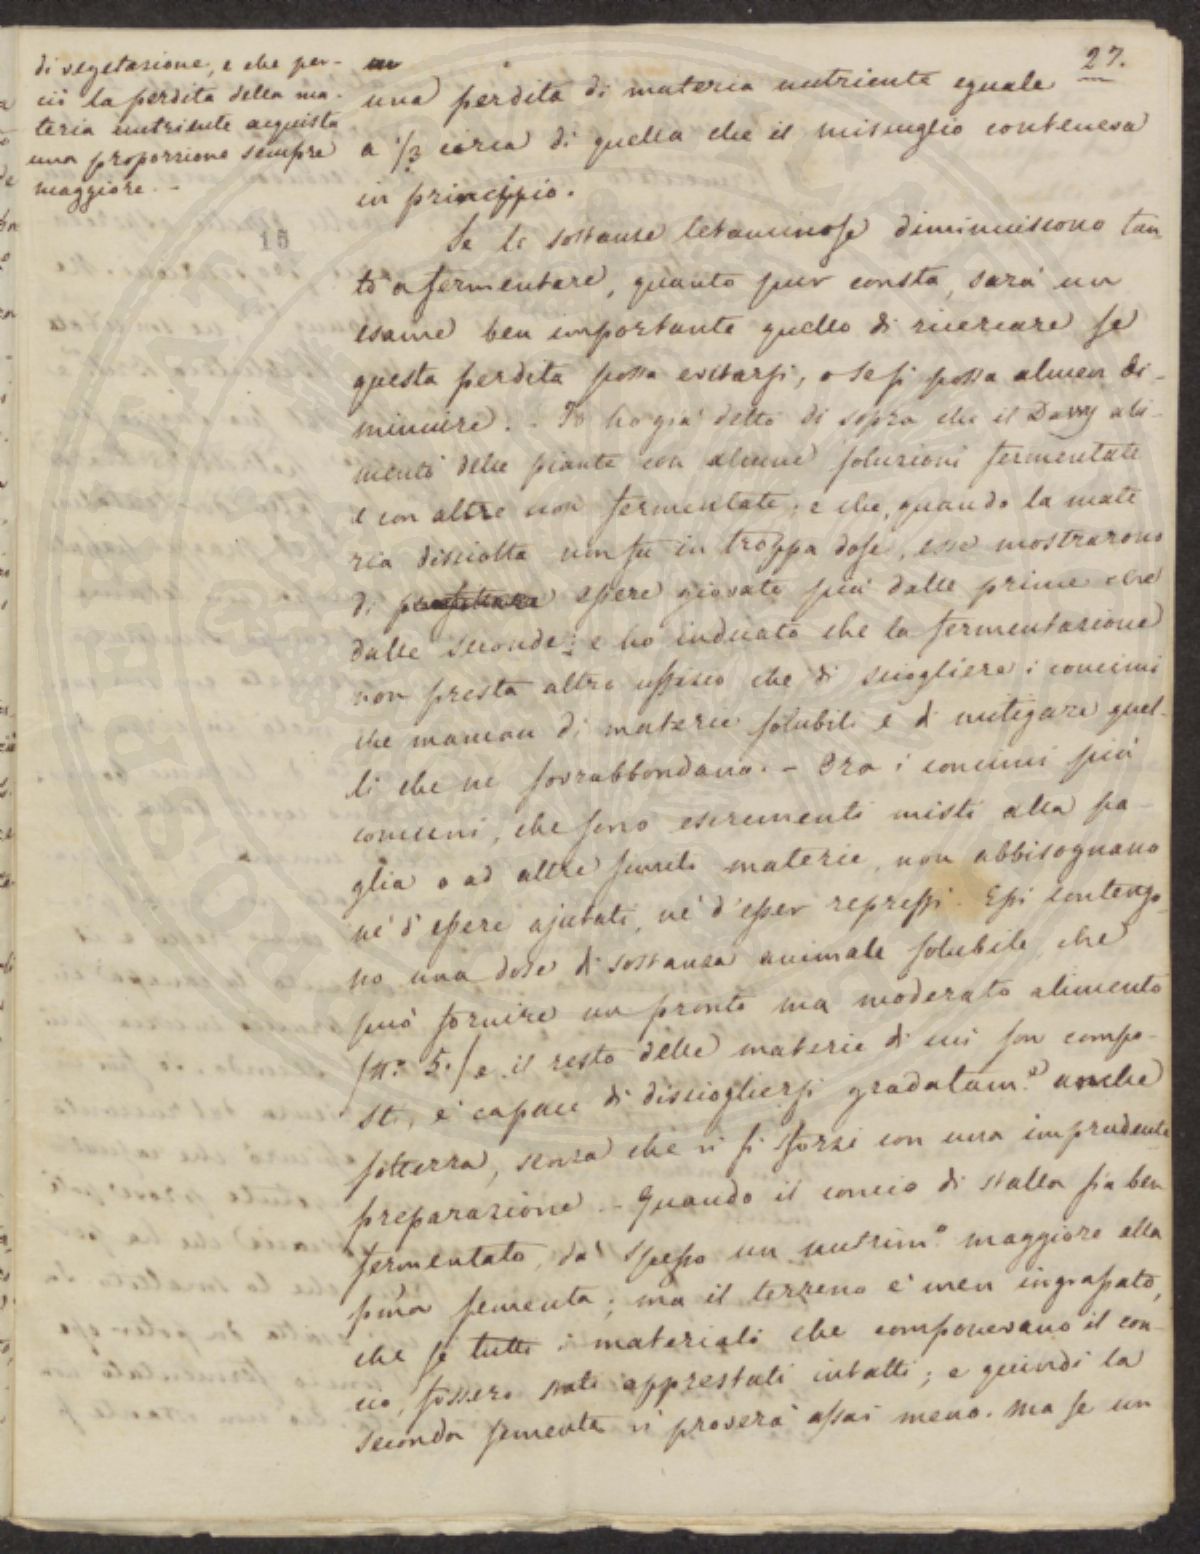 27.
di vegetazione, e che per-
ciò la perdita della ma-
teria nutriente acquista
una proporzione sempre
maggiore. -
15
una perdita di materia nutriente eguale
a 1/3 circa di quella che il miscuglio conteneva
in principio.
Se le sostanze letaminose diminuiscono tan
to a fermentare, quanto pur consta, sarà un
esame ben importante quello di ricercare se
questa perdita possa evitarsi, o se si possa almen di-
minuire. - Io ho già detto di sopra che il Davy ali-
mentò delle piante con alcune soluzioni fermentate
e con altre non fermentate; e che, quando la mate
ria disciolta non fu in troppa dose, esse mostrarono
di essere giovate più dalle prime che
dalle seconde; e ho indicato che la fermentazione
non presta altro uffizio che di sciogliere i concimi
che mancan di materie solubili e di mitigare quel-
li che ne sovrabbondano. - Ora i concimi più
comuni, che sono escrementi misti alla pa-
glia o ad altre simili materie, non abbisognano
nè d'essere ajutati, nè d'esser repressi. Essi contengo-
no una dose di sostanza animale solubile, che
può fornire un pronto ma moderato alimento
(n.o 5.) e il resto delle materie di cui son compo-
sti, è capace di disciogliersi gradatam.e anche
sotterra, senza che vi si forzi con una imprudente
preparazione. - Quando il concio di stalla sia ben
fermentato, dà spesso un nutrim.o maggiore alla
pma sementa; ma il terreno è men ingrassato,
che se tutti i materiali che componevano il con-
cio, fossero stati apprestati intatti; e quindi la
seconda sementa vi proverà assai meno. Ma se un